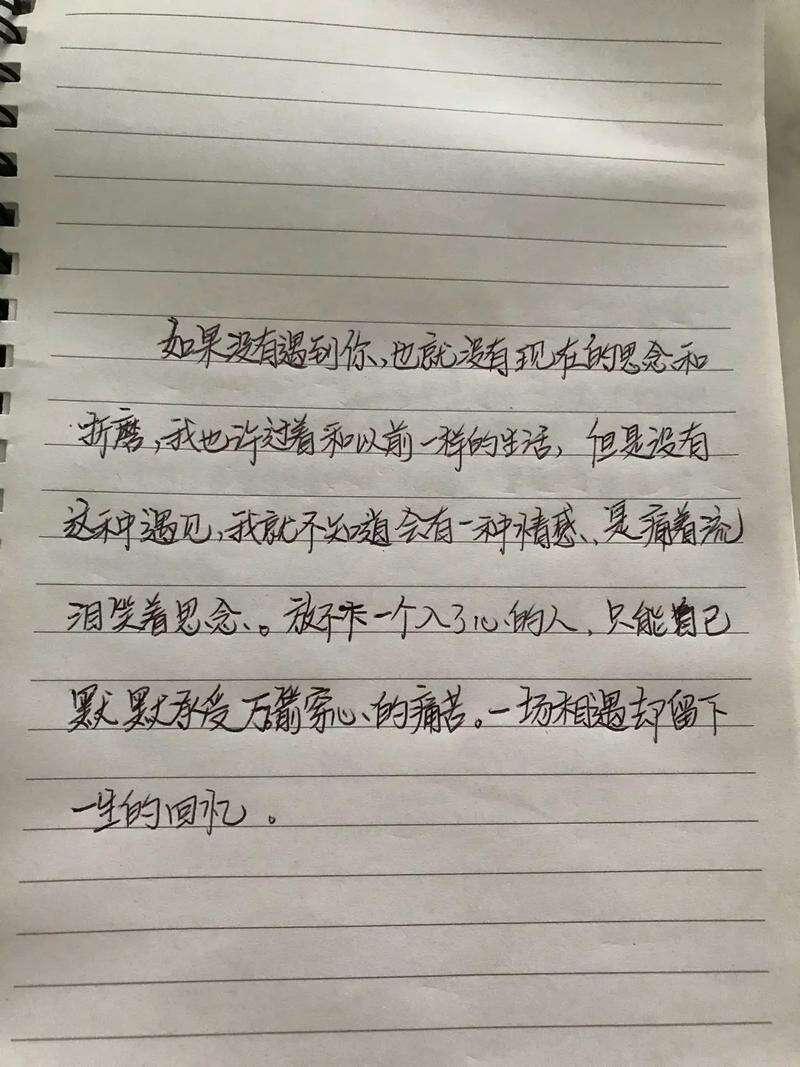 如果没有遇到你,也就没有现在的思念和
折磨,我也许过着和以前一样的生活,但是没有
这种遇见,我就不知道会有一种情感、是痛着流
泪笑着思念、。放不下一个入了心的人,只能自己
默默承受万箭穿心的痛苦。一场相遇却留下
一生的回忆。